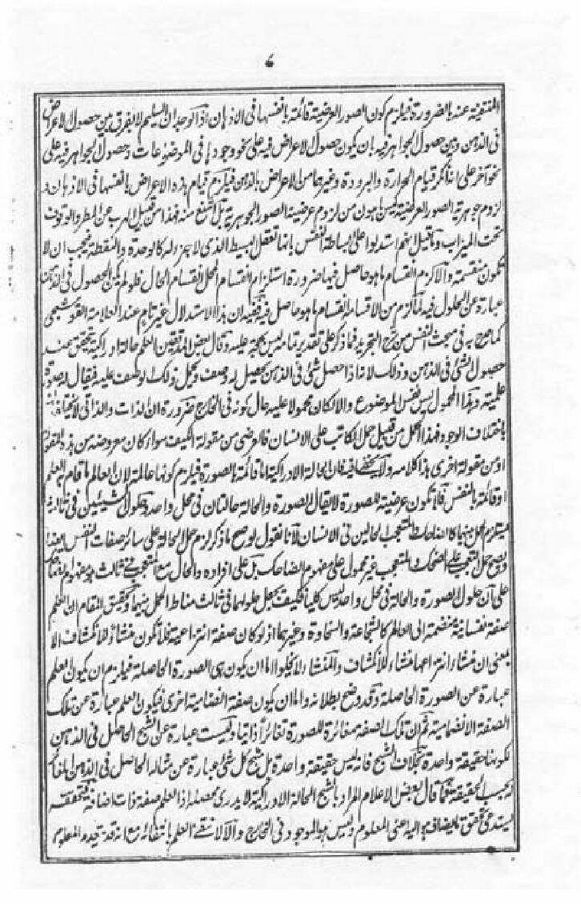 ٤
المنتفية عنه بالضرورة فيلزم كون الصور العرضية قائمة بانفسها فى الاذهان اذ الوجدان السليم لا يفرق بين حصول الاعراض
فى الذهن وبين حصول الجواهر فيه بان يكون حصول الاعراض فيه على نحو وجودها فى الموضوعات وحصول الجواهر فيه على
نحو آخر على انا نكر قيام الحرارة والبرودة وغيرهما من الاعراض بالذهن فيلزم قيام هذه الاعراض بانفسها فى الاذهان و
لزوم جوهرية الصور العرضية ليس باهون من لزوم عرضية الصور الجوهرية بل اشنع منه فهذا من قبيل الهرب عن المطر والوقوف
تحت الميزاب وما قيل انهم استدلوا على بساطة النفس بانها تعقل البسيط الذى لا جزء له كالوحدة والنقطة فيجب ان لا
تكون منقسمة والا لزم انقسام ما هو حاصل فيها ضرورة استلزام انقسام المحل انقسام الحال فلو لم يكن الحصول فى الذهن
عبارة عن الحلول فيه لم يلزم من الانقسام انقسام ما هو حاصل فيه ففيه ان هذا الاستدلال غير تام عند العلامة القوشجى
كما صرح به فى مبحث النفس من شرح التجريد فما ذكر على تقدير تمامه ليس بحجة عليه وقال بعض المدققين العلم حالة ادراكية يتحقق عند
حصول الشئ فى الذهن وذلك لانا اذا حصل شئ فى الذهن يحصل له وصف ويحمل ذلك الوصف عليه فيقال له صورة
علمية وهذا المحمول ليس نفس الموضوع والا لكان محمولا عليه حال كونه فى الخارج ضرورة ان الذات والذاتى لا يختلفان
باختلاف الوجود فهذا الحمل من قبيل حمل الكاتب على الانسان فالعرضى من مقولة الكيف سواء كان معروضه من هذه المقولة
او من مقولة اخرى هذا كلامه ولا يخفى ما فيه فان الحالة الادراكية اما قائمة بالصورة فيلزم كونها عالمة لان العالم ما قام به العلم
او قائمة بالنفس فلا تكون عرضية للصورة لا يقال الصورة والحالة حالتان فى محل واحد وحلول الشيئين فى ثالث
يستلزم الحمل بينهما كالضاحك والمتعجب الحالين فى الانسان لانا نقول لو صح ما ذكر لزم حمل الحالة على سائر صفات النفس ايضا
المتعجب غير محمول على مفهوم الضاحك بل على افراده والحال مع المتعجب فى ثالث هو مفهوم الضاحك
على ان حلول الصورة والحالة فى محل واحد ليس كليا فكيف يجعل حلولهما فى ثالث مناط الحمل بينهما وتحقيق المقام ان العلم
صفة نفسانية منضمة الى العالم كالشجاعة والسخاوة وغيرهما اذ لو كان صفة انتزاعية فلا تكون منشأ للانكشاف الا
بمعنى ان منشأ انتزاعها منشاء للانكشاف والمنشاء لا يخلو اما ان يكون هى الصورة الحاصلة فيلزم ان يكون العلم
عبارة عن الصورة الحاصلة وقد وضح بطلانه واما ان يكون صفة انضمامية اخرى فيكون العلم عبارة عن تلك
الصفة الانضمامية ثم ان تلك الصفة مغائرة للصورة تغائرا ذاتيا وليست عبارة عن الشبح الحاصل فى الذهن
لكونها حقيقة واحدة بخلاف الشبح فانه ليس حقيقة واحدة بل شبح كل شئ عبارة عن مثاله الحاصل فى الذهن المخالف
له بحسب الحقيقة فما قال بعض الاعلام المراد بالشبح الحالة الادراكية لا يدرى محصله اذ العلم صفة ذات اضافة فتحققه
يستدعى تحقق المضاف اليه اعنى المعلوم وليس هو الموجود فى الخارج والا لانتفى العلم بانتفائه مع انه قد يبقى والمعلوم